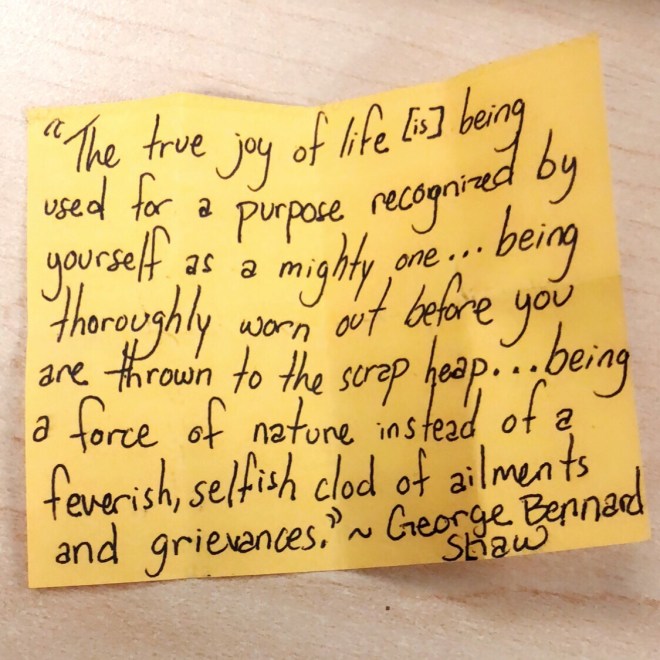 “The true joy of life [is] being
used for a purpose recognized by
yourself as a mighty one... being
thoroughly worn out before you
are thrown to the scrap heap...being
a force of nature instead of a
feverish, selfish clod of ailments
and grievances.” ~ George Bennard
Shaw